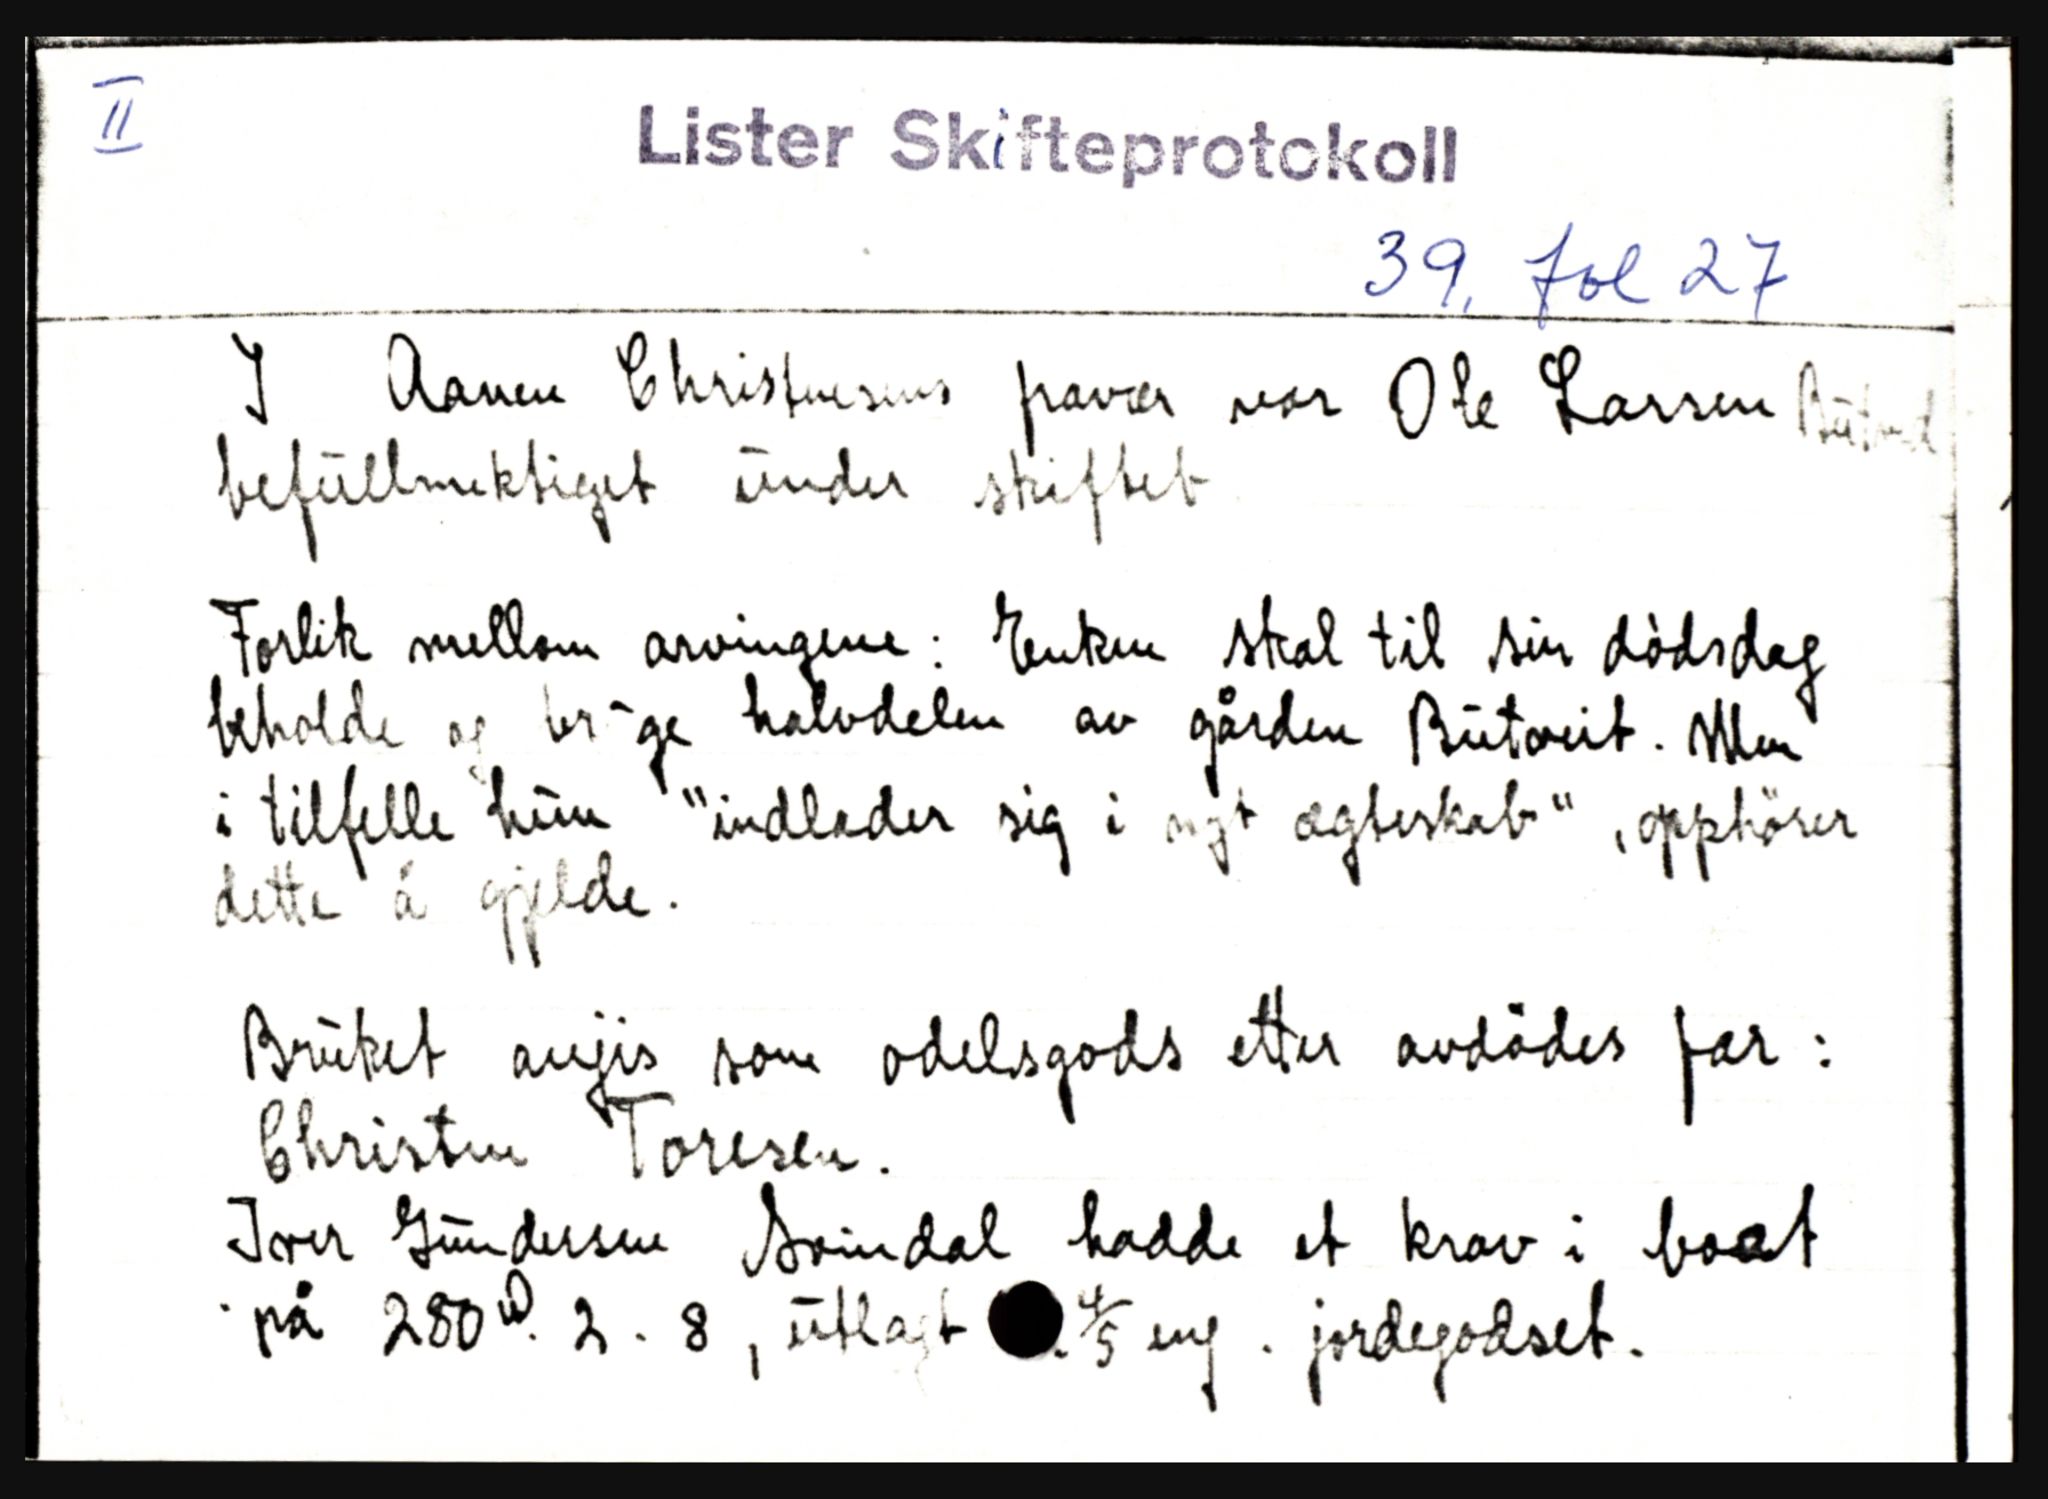 II
Lister Skifteprotokoll
39, fol 27
I Aanen Christensens fravær var Ole Larsen
befullmektiget under skiftet
Forlik mellom arvingene: Enken skal til sin dödsdag
beholde og bruge halvdelen av gården Butveit. Men
i tilfelle hun "indlader sig i nyt ægteskab", opphörer
dette å gjelde.
Bruket angis som odelsgods etter avdödes far:
Christen Toresen.
Iver Gundersen Svindal hadde et krav i boet
på 280 . 2 . 8, utlagt 4/5 eng. jordegodset.